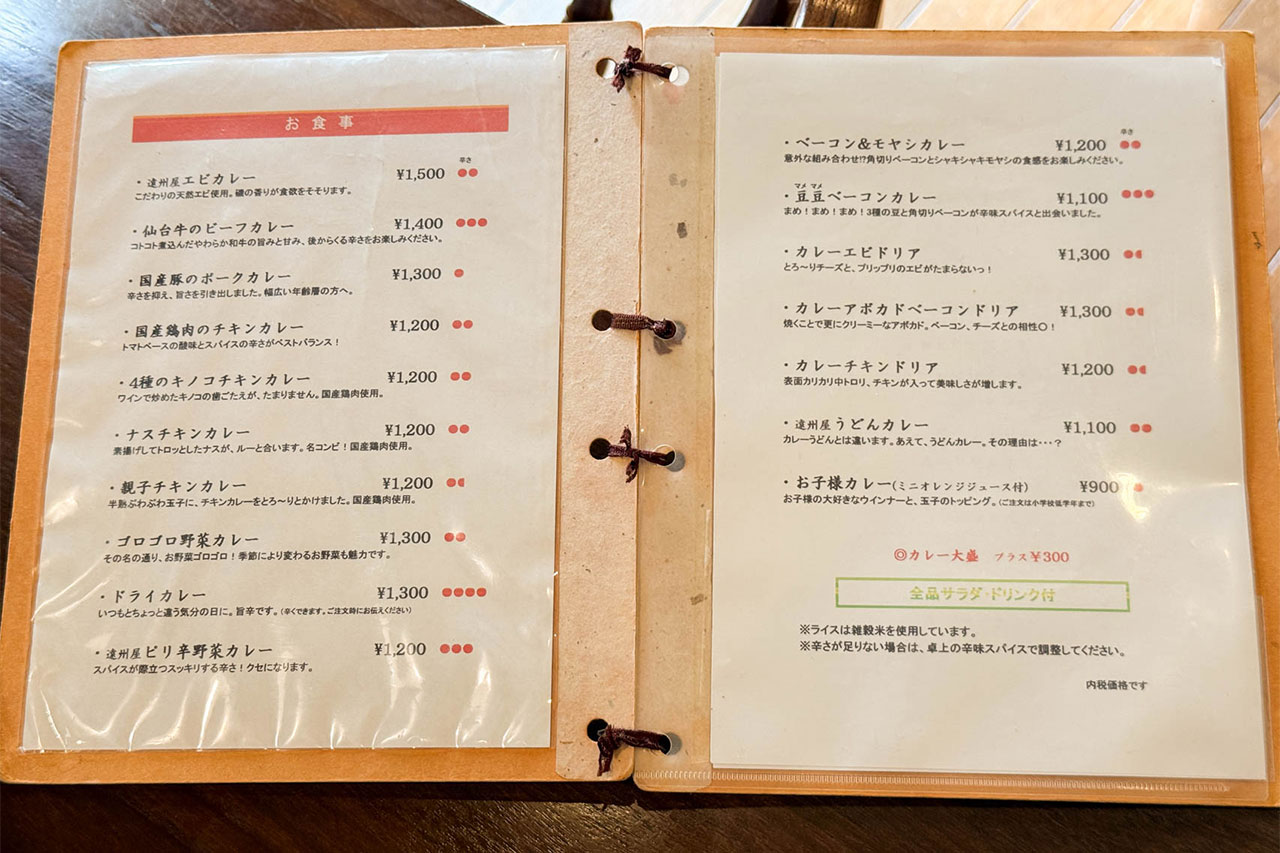 お食事
辛さ
・遠州屋エビカレー ¥1,500 ●●
こだわりの天然エビ使用。磯の香りが食欲をそそります。
・仙台牛のビーフカレー ¥1,400 ●●●
コトコト煮込んだやわらか和牛の旨みと甘み、後からくる辛さをお楽しみください。
・国産豚のポークカレー ¥1,300 ●
辛さを抑え、旨さを引き出しました。幅広い年齢層の方へ。
・国産鶏肉のチキンカレー ¥1,200 ●●
トマトベースの酸味とスパイスの辛さがベストバランス！
・4種のキノコチキンカレー ¥1,200 ●●
ワインで炒めたキノコの歯ごたえが、たまりません。国産鶏肉使用。
・ナスチキンカレー ¥1,200 ●●
素揚げしてトロッとしたナスが、ルーと合います。名コンビ！国産鶏肉使用。
・親子チキンカレー ¥1,200
半熟ふわふわ玉子に、チキンカレーをとろ〜りとかけました。国産鶏肉使用。
・ゴロゴロ野菜カレー ¥1,300 ●●
その名の通り、お野菜ゴロゴロ！季節により変わるお野菜も魅力です。
・ドライカレー ¥1,300 ●●●●
いつもとちょっと違う気分の日に。旨辛です。(辛くできます。ご注文時にお伝えください)
・遠州屋ピリ辛野菜カレー ¥1,200 ●●●
スパイスが際立つスッキリする辛さ！クセになります。
辛さ
・ベーコン&モヤシカレー ¥1,200 ●●
意外な組み合わせ!?角切りベーコンとシャキシャキモヤシの食感をお楽しみください。
マメ マメ
・豆豆ベーコンカレー ¥1,100 ●●●
まめ！まめ！まめ！3種の豆と角切りベーコンが辛味スパイスと出会いました。
・カレーエビドリア ¥1,300
とろ〜りチーズと、プリップリのエビがたまらないっ！
・カレーアボカドベーコンドリア ¥1,300
焼くことで更にクリーミーなアボカド。ベーコン、チーズとの相性〇！
・カレーチキンドリア ¥1,200
表面カリカリ中トロリ、チキンが入って美味しさが増します。
・遠州屋うどんカレー ¥1,100 ●●
カレーうどんとは違います。あえて、うどんカレー。その理由は・・・？
・お子様カレー(ミニオレンジジュース付) ¥900 ●
お子様の大好きなウインナーと、玉子のトッピング。(ご注文は小学校低学年まで)
◎カレー大盛 プラス¥300
全品サラダ・ドリンク付
※ライスは雑穀米を使用しています。
※辛さが足りない場合は、卓上の辛味スパイスで調整してください。
内税価格です